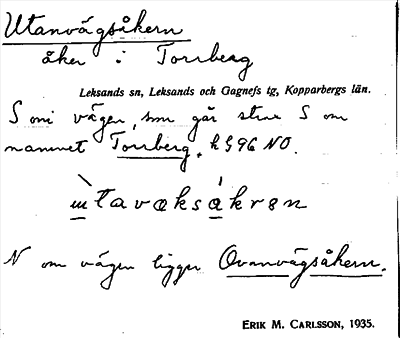 Utanvägsåkern
åker i Torrberg
Leksands sn, Leksands och Gagnefs tg, Kopparbergs län.
S om vägen, som går strax S om
namnet Torrberg. h 596 NO.
N om vägen ligger Ovanvägsåkern.
ERIK M. CARLSSON, 1935.